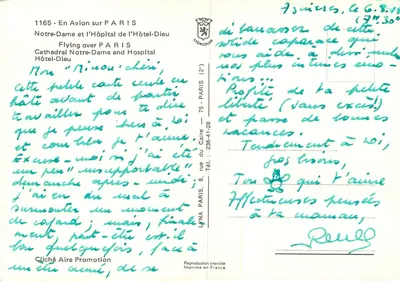 1165 - En Avion sur PARIS
Notre-Dame et l'Hôpital de l'Hôtel-Dieu
Flying over PARIS
Cathedral Notre-Dame and Hospital
Hôtel-Dieu
Mon "Minou" chéri,
cette petite carte écrite en
hâte avant de partir
travailler pour te dire
que je pense bien à toi
et combien je t'aime.
Excuse-moi si j'ai été
un peu "insupportable"
dimanche après-midi;
j'ai eu du mal à
surmonter un moment
de cafard; mais, finale-
ment, peut-être est-il
bon quelquefois, face à
un être aimé, de se
Cliché Alre Promotion
LYNA PARIS, 8, rue du Caire — 75 - PARIS (2°)
Tél. : 236-41-28
Reproduction interdite
Imprimé en France
Asnières, le 6.8.
débarrasser de cette
solide carapace qui
vous aide à
nos plus intimes émo-
tions...
Profite de ta petite
liberté (sans excès!)
et passe de bonnes
vacances.
Tendrement à toi,
gros bisous,
Ton qui t'aime
Affectueuses pensées
à ta maman,